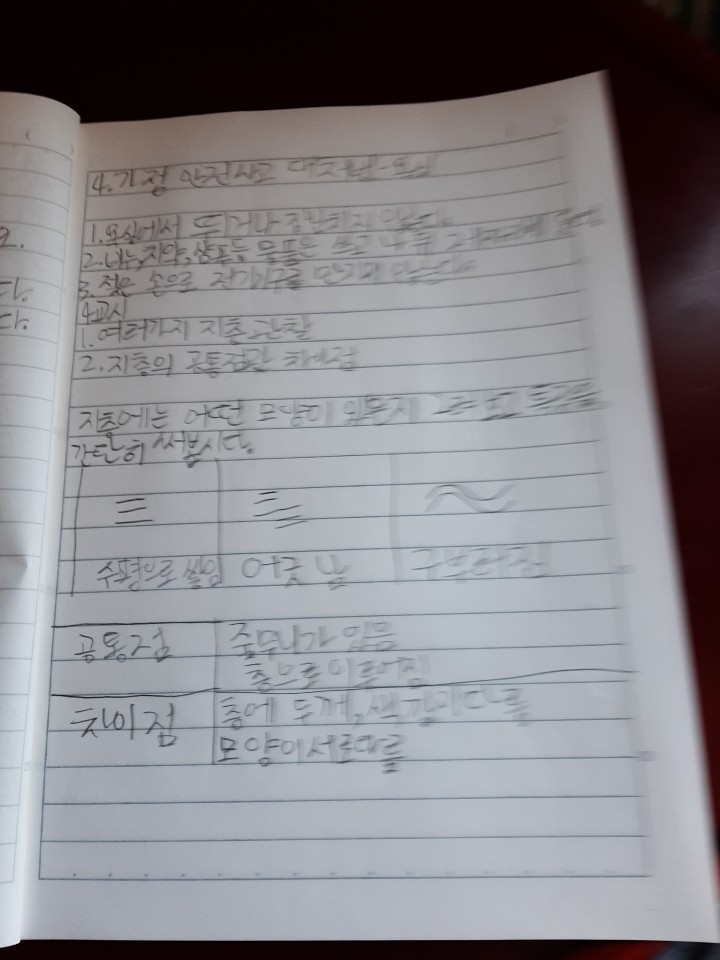 다.
다.
4. 가정 안전사고 대처법-욕실
1. 욕실에서 뛰거나 장난치지 않는다.
2. 비누, 치약, 샴푸등 물품은 쓰고 난 후
3. 젖은 손으로 전기기구를 만지지 않는다.
4교시
1. 여러가지 지층 관찰
2. 지층의 공통점과 차이점
지층에는 어떤 모양이 있는지 그려 보고 특징을
간단히 써봅시다.
수평으로 쌓임 어긋남 구부러짐
공통점 줄무늬가 있음
층으로 이루어짐
차이점 층에 두께, 색깔이 다를
모양이 서로다를